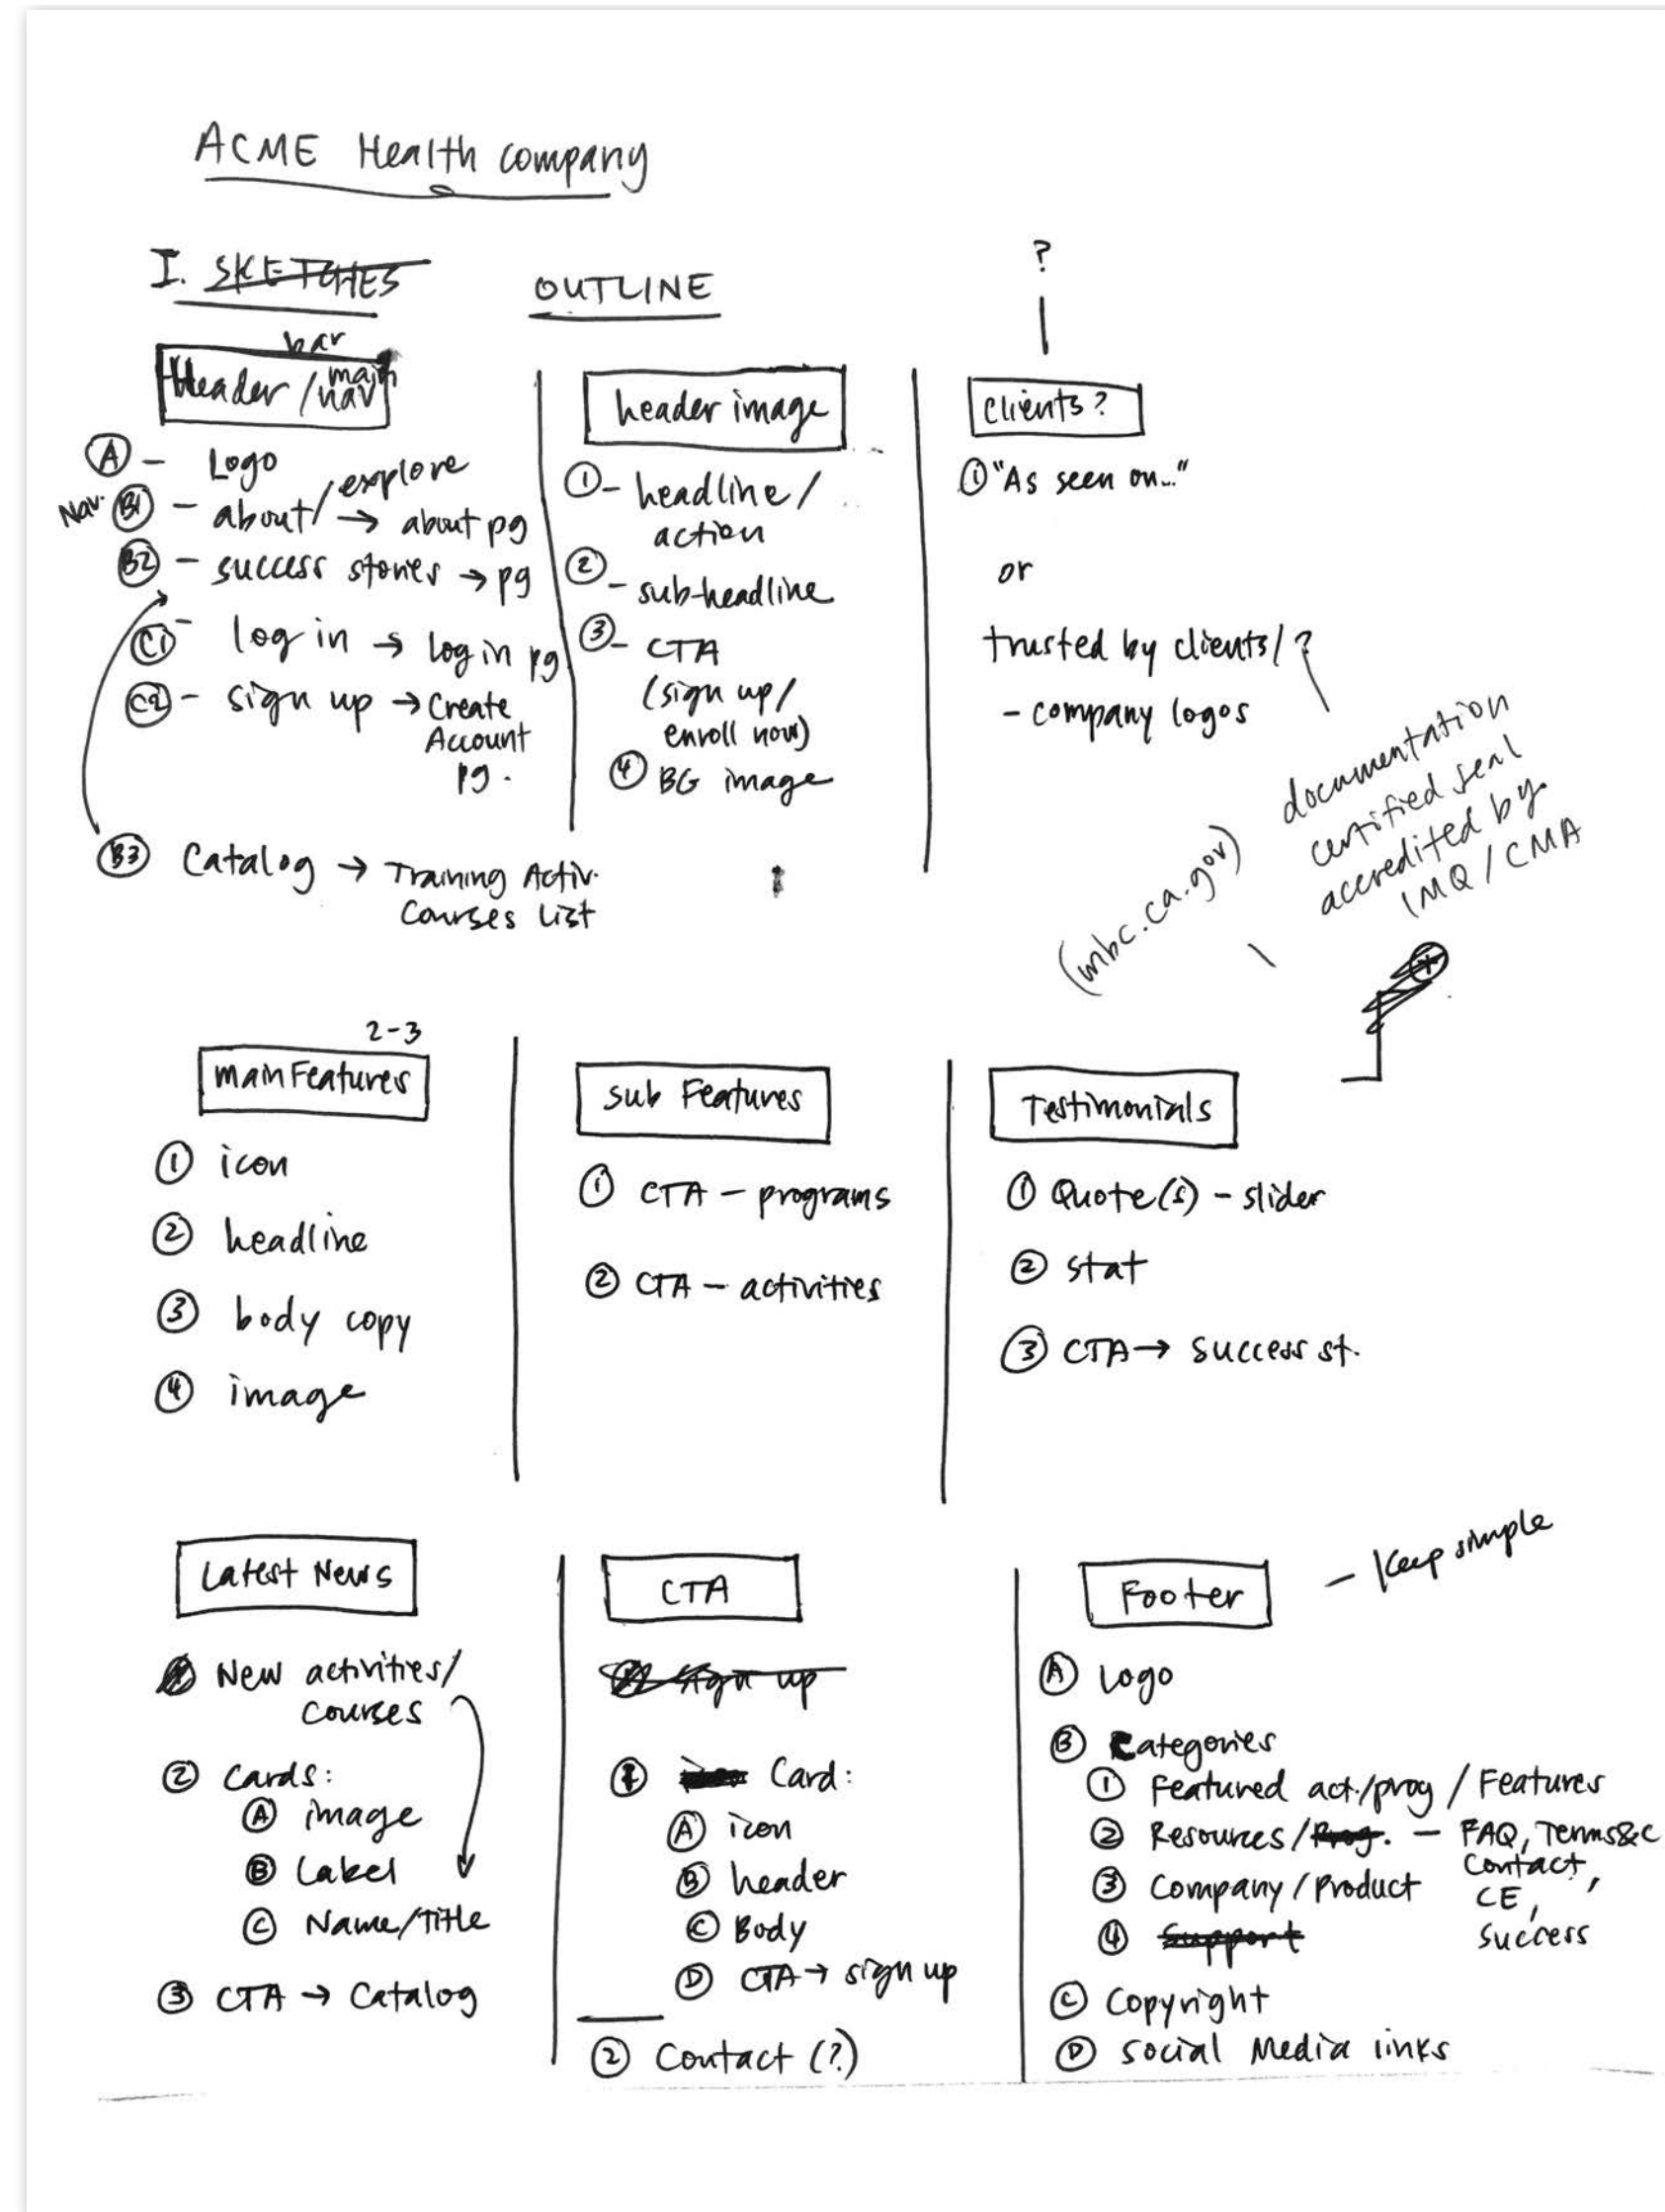 ACME Health company
I. SKETCHES
OUTLINE
?
bar
Header / main nav
A – Logo
Nav. B1 – about/explore → about pg
B2 – success stories → pg
C1 – log in → login pg
C2 – sign up → Create
Account
pg.
B3 Catalog → Training Activ.
Courses List
header image
1 – headline/
action
2 – sub-headline
3 – CTA
(sign up/
enroll now)
4 BG image
clients?
1 "As seen on..."
or
trusted by clients/?
– company logos
documentation
certified seal
accredited by
IMQ / CMA
(mbc.ca.gov)
2-3
main Features
1 icon
2 headline
3 body copy
4 image
Sub Features
1 CTA – programs
2 CTA – activities
Testimonials
1 Quote(s) – slider
2 stat
3 CTA → success st.
Latest News
New activities/
courses
2 Cards:
A image
B Label
C Name/Title
3 CTA → Catalog
CTA
sign up
1 Card:
A icon
B header
C Body
D CTA → sign up
2 Contact (?)
Footer – Keep simple
A Logo
B Categories
1 Featured act./prog / Features
2 Resources/Prog. – FAQ, Terms&C
Contact,
3 Company/Product CE,
4 Support Success
C Copyright
D Social Media links